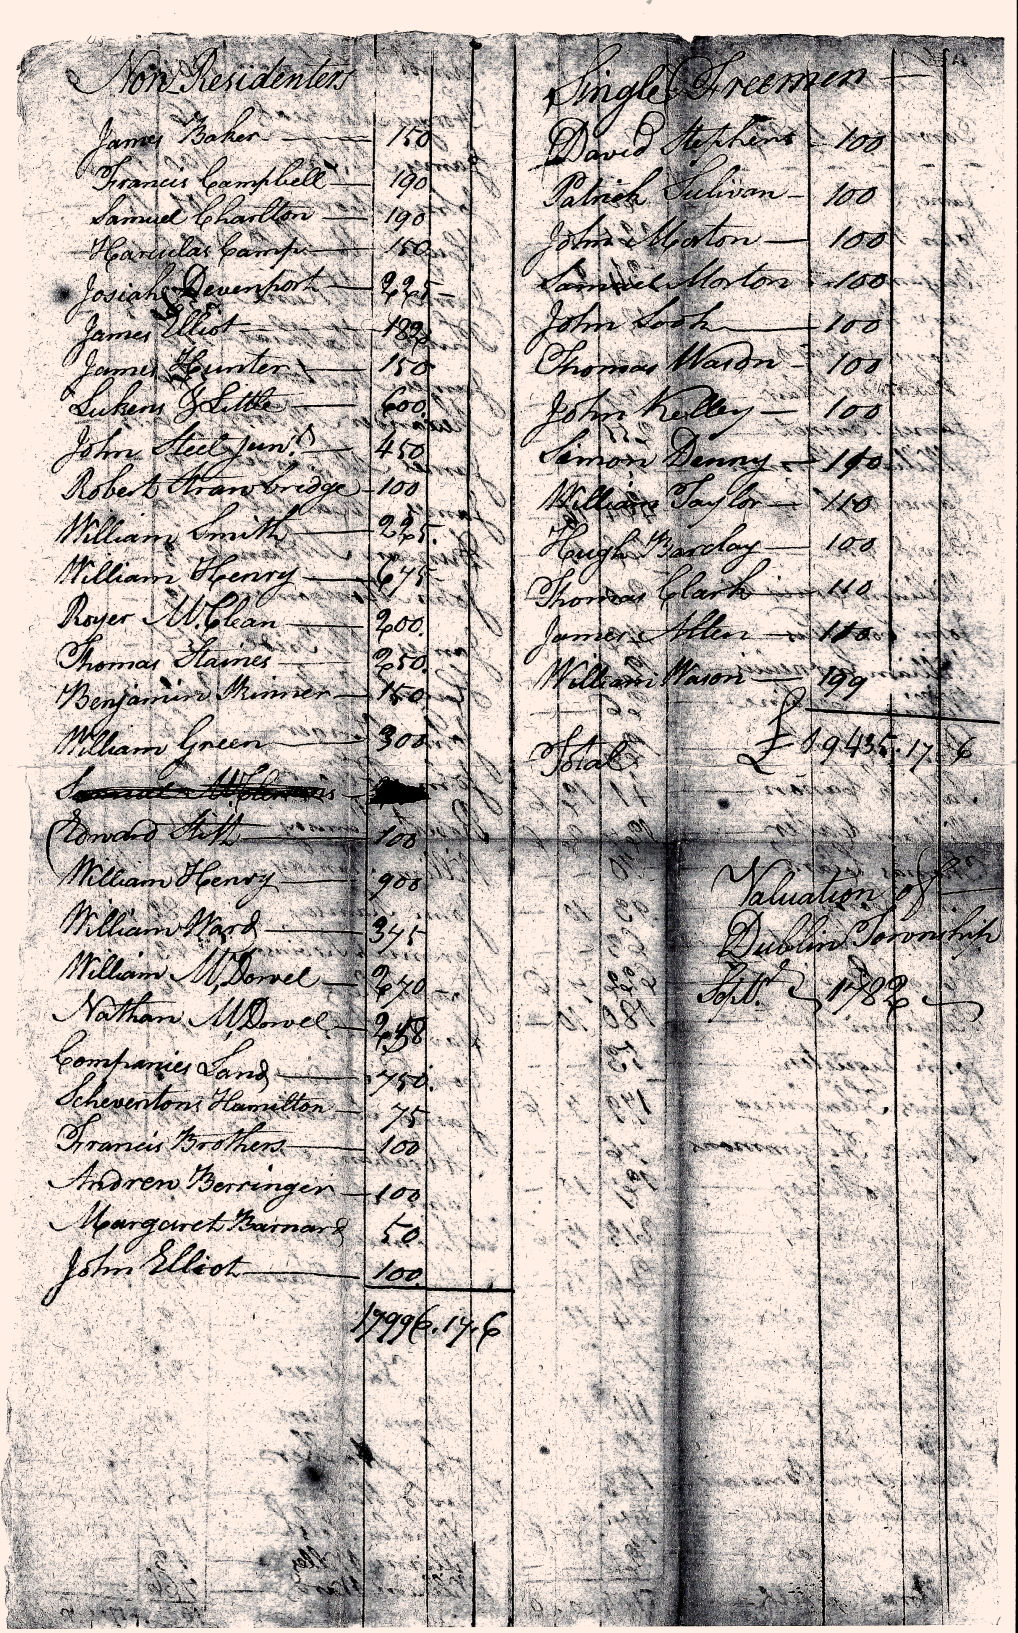 Non Residenters
James Baker — 150
Francis Campbell — 190
Samuel Charlton — 190
Harculas Camp — 150
Josiah Devenport — 225 —
James Elliot — 189
James Hunter — 150
Lukens & Little — 600
John Steel Junr — 450
Robert Strawbridge — 100
William Smith — 225.
William Henry — 675 —
Royer McClean — 200.
Thomas Staines — 250.
Benjamin Skinner — 150.
William Green — 300
Edward Stitt — 100
William Henry — 900
William Ward — 345
William McDowel — 270 —
Nathan McDowel —
Companies Land — 750.
Scheventons Hamilton — 75
Francis Brothers — 100
Andrew Berringer — 100
Margaret Barnard 50.
John Elliot — 100.
17996.17.6
Single Freemen —
David Stephens — 100
Patrick Sulivan — 100
John Morton — 100
Samuel Morton — 100
John Look — 100
Thomas Wason — 100
John Kelley — 100
Simon Denny — 110
William Taylor — 110
Hugh Barclay — 100
Thomas Clark — 110
James Allen — 110
William Wason — 199
Total £ 19435.17.6
Valuation of
Dublin Township
Septr 1782